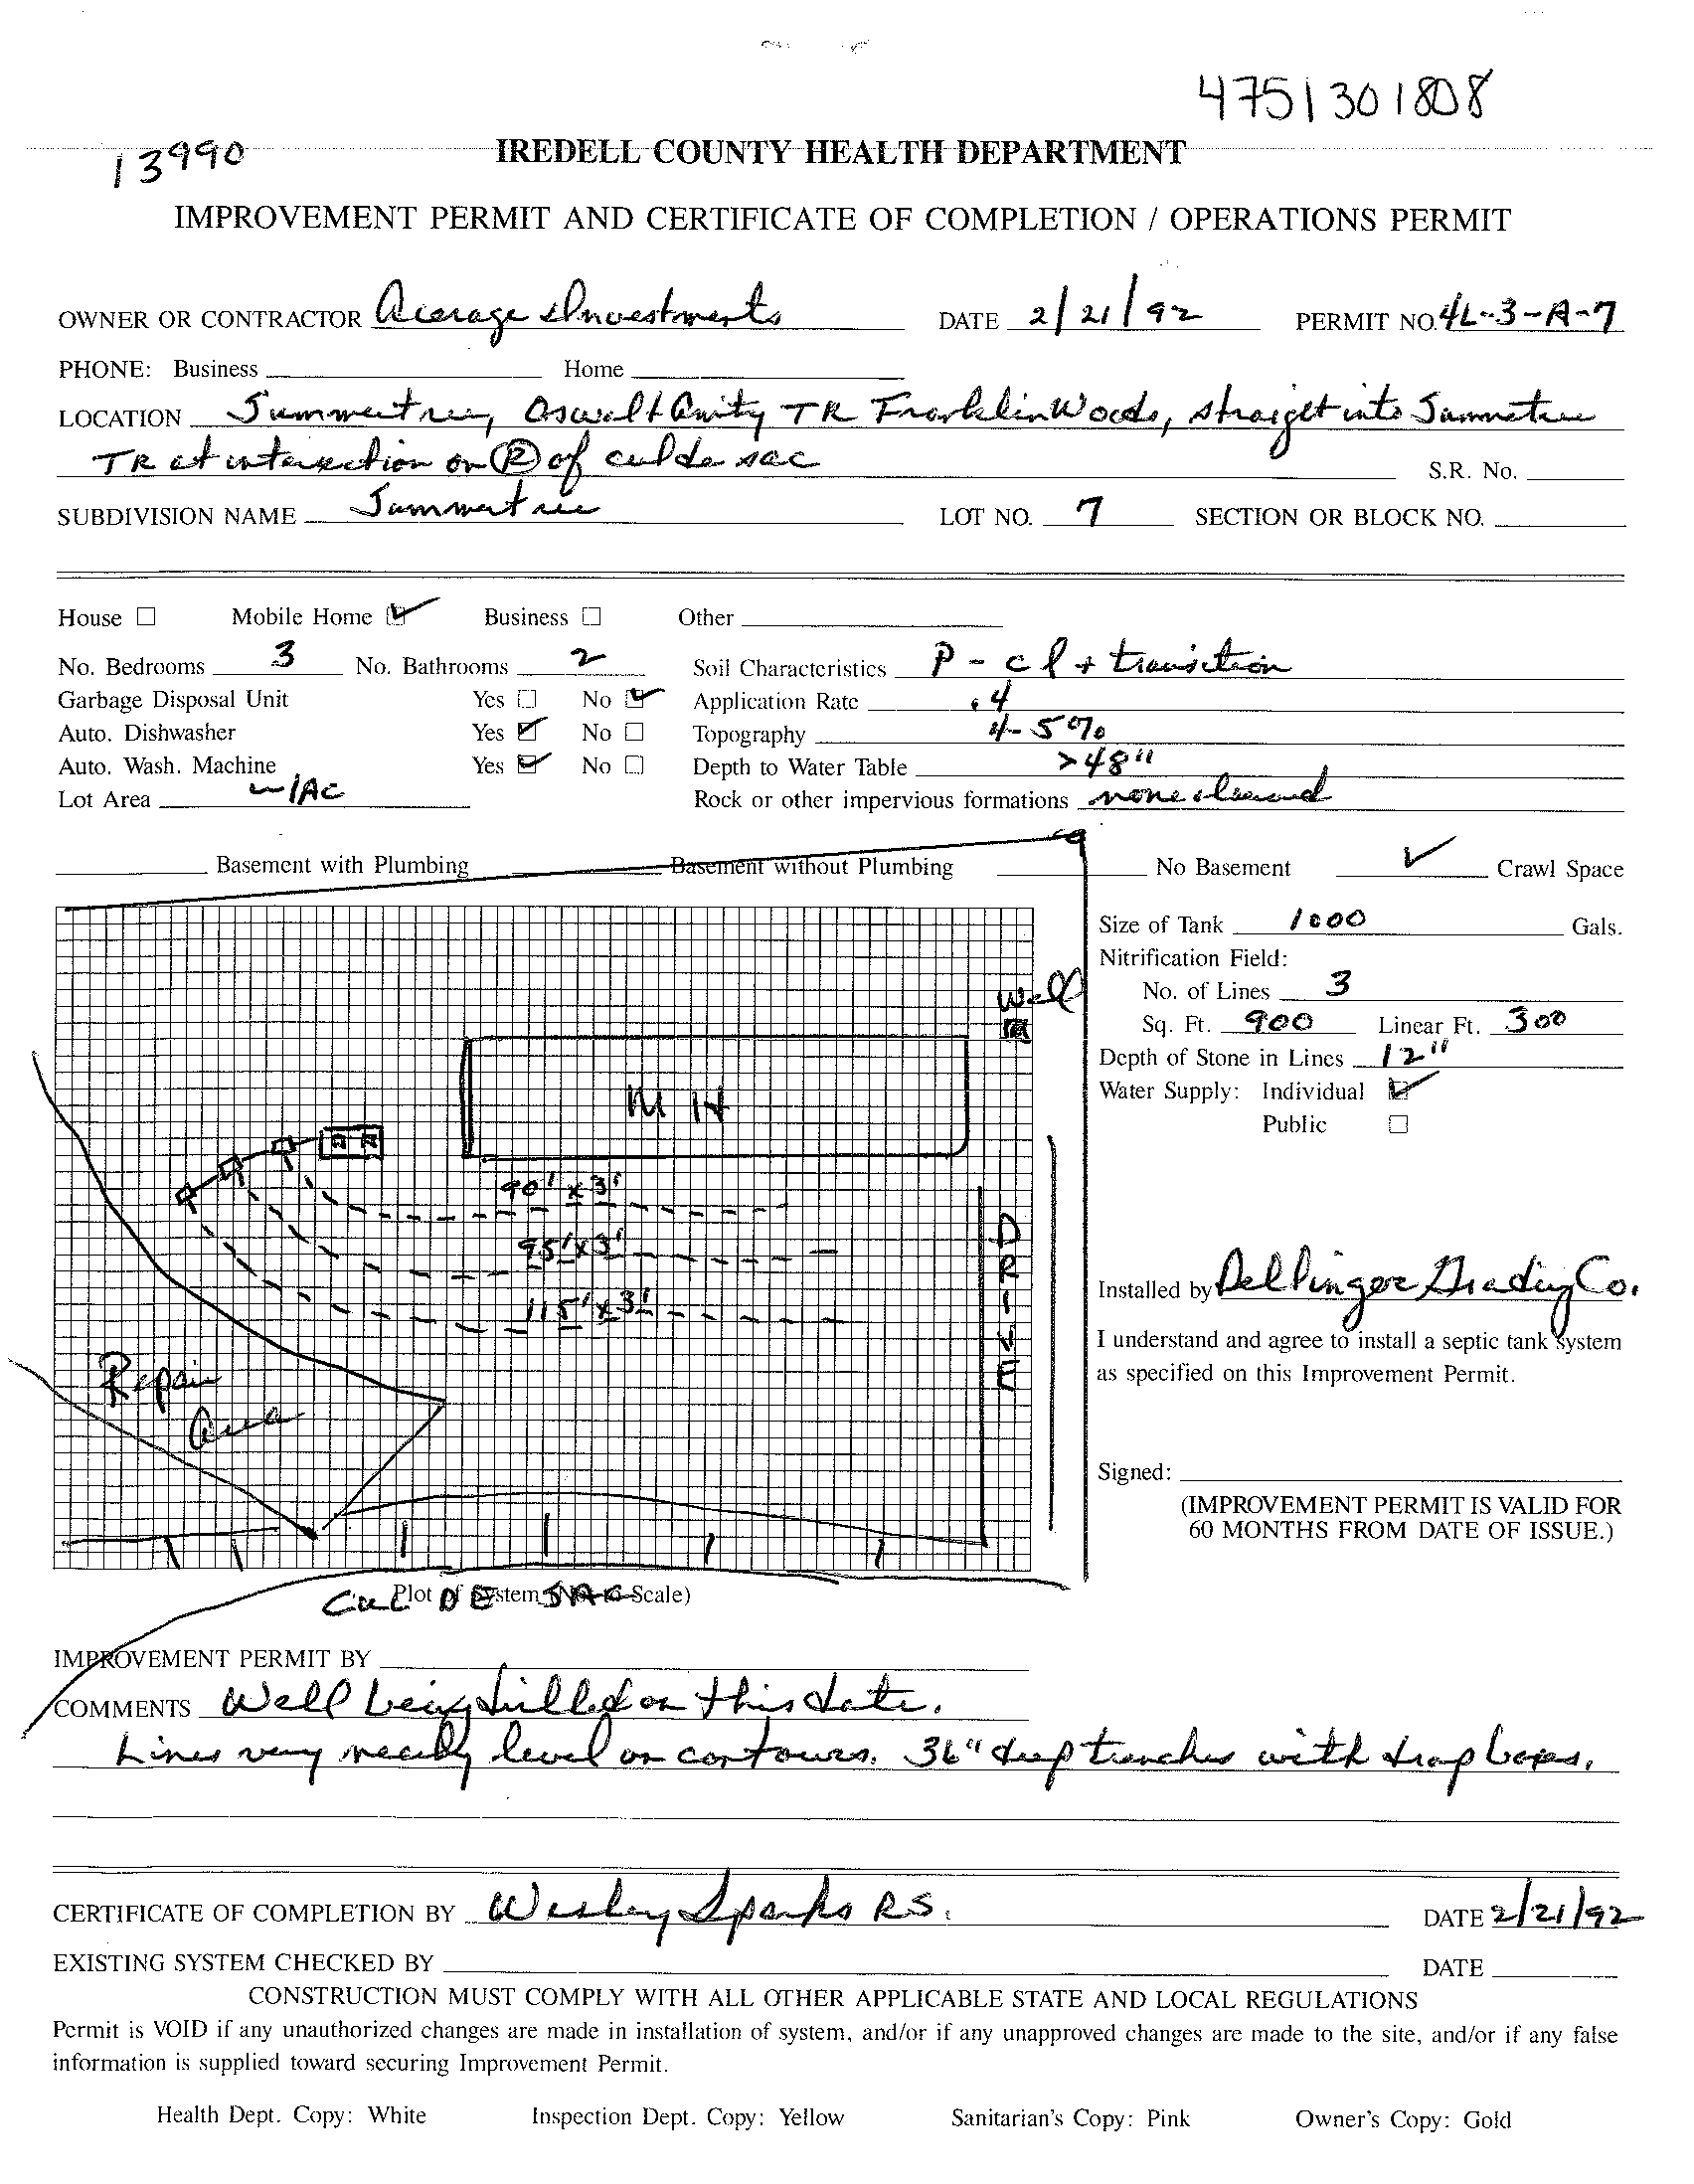 4751301808
13990
IREDELL COUNTY HEALTH DEPARTMENT
IMPROVEMENT PERMIT AND CERTIFICATE OF COMPLETION / OPERATIONS PERMIT
OWNER OR CONTRACTOR Acerage Investments DATE 2/21/92 PERMIT NO. 4L-3-A-7
PHONE: Business Home
LOCATION Summertree, Oswalt Amity TR Franklin Woods, straight into Summertree
TR at intersection on (R) of cul de sac S.R. No.
SUBDIVISION NAME Summertree LOT NO. 7 SECTION OR BLOCK NO.
House ☐ Mobile Home ☑ Business ☐ Other
No. Bedrooms 3 No. Bathrooms 2 Soil Characteristics P - cl + transition
Garbage Disposal Unit Yes ☐ No ☑ Application Rate .4
Auto. Dishwasher Yes ☑ No ☐ Topography 4-5%
Auto. Wash. Machine Yes ☑ No ☐ Depth to Water Table >48"
Lot Area ~1Ac Rock or other impervious formations none observed
Basement with Plumbing Basement without Plumbing No Basement ✓ Crawl Space
Size of Tank 1000 Gals.
Nitrification Field:
No. of Lines 3
Sq. Ft. 900 Linear Ft. 300
Depth of Stone in Lines 12"
Water Supply: Individual ☑
Public ☐
Well
M H
90' x 3'
95' x 3'
115' x 3'
DRIVE
Repair
Area
Installed by Dellinger Grading Co.
I understand and agree to install a septic tank system
as specified on this Improvement Permit.
Signed:
(IMPROVEMENT PERMIT IS VALID FOR
60 MONTHS FROM DATE OF ISSUE.)
Plot of System (Not to Scale)
CUL DE SAC
IMPROVEMENT PERMIT BY
COMMENTS Well being drilled on this date.
Lines very nearly level on contours. 36" deep trenches with drop boxes.
CERTIFICATE OF COMPLETION BY Wesley Sparks RS. DATE 2/21/92
EXISTING SYSTEM CHECKED BY DATE
CONSTRUCTION MUST COMPLY WITH ALL OTHER APPLICABLE STATE AND LOCAL REGULATIONS
Permit is VOID if any unauthorized changes are made in installation of system, and/or if any unapproved changes are made to the site, and/or if any false
information is supplied toward securing Improvement Permit.
Health Dept. Copy: White Inspection Dept. Copy: Yellow Sanitarian's Copy: Pink Owner's Copy: Gold